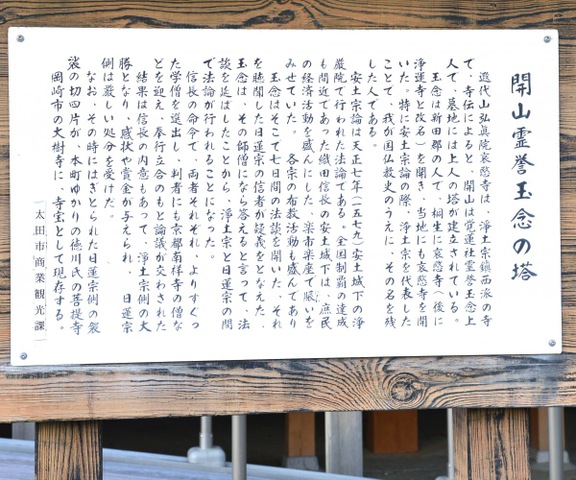 開山霊誉玉念の塔
遐代山弘眞院哀愍寺は、浄土宗鎮西派の寺
で、寺伝によると、開山は覚蓮社霊誉玉念上
人で、墓地には上人の塔が建立されている。
玉念は新田郡の人で、桐生に哀愍寺（後に
浄運寺と改名）を開き、当地にも哀愍寺を開
いた。特に安土宗論の際、浄土宗を代表した
ことで、我が国仏教史のうえに、その名を残
した人である。
安土宗論は天正七年（一五七九）安土城下の浄
厳院で行われた法論である。全国制覇の達成
も間近であった織田信長の安土城下は、庶民
の経済活動を盛んにした、楽市楽座で賑いを
みせていた。各宗の布教活動も盛んであり
玉念はそこで七日間の法談を開いた。それ
を聴聞した日蓮宗の信者が疑義をとなえた。
玉念は、その師僧になら答えると言って、法
談を延ばしたことから、浄土宗と日蓮宗の間
で法論が行われることになった。
信長の命令で、両者それぞれ、よりすぐっ
た学僧を選出し、判者にも京都南祥寺の僧な
どを迎え、奉行立合のもと論議が交わされた
結果は信長の内意もあって、浄土宗側の大
勝となり、感状や賞金が与えられ、日蓮宗
側は厳しい処分を受けた。
なお、その時にはぎとられた日蓮宗側の袈
裟の切四片が、本町ゆかりの徳川氏の菩提寺
岡崎市の大樹寺に、寺宝として現存する。
太田市商業観光課